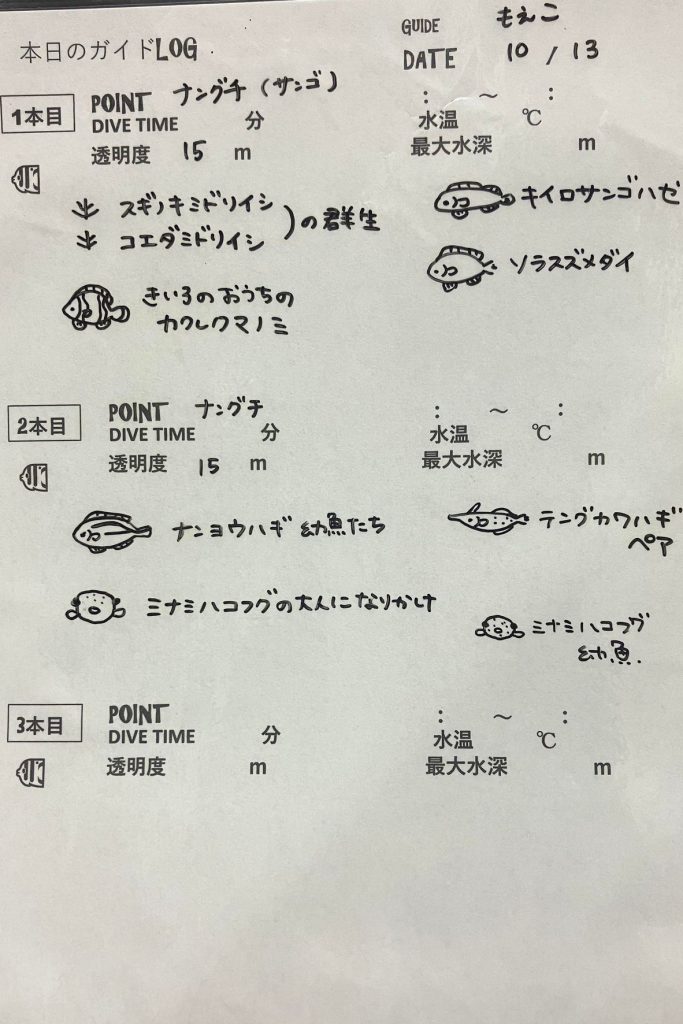 本日のガイドLOG
GUIDE もえこ
DATE 10 / 13
1本目
POINT ナングチ (サンゴ)
DIVE TIME 分
透明度 15 m
: ~ :
水温 ℃
最大水深 m
スギノキミドリイシ
コエダミドリイシ
)の群生
キイロサンゴハゼ
ソラスズメダイ
きいろのおうちの
カクレクマノミ
2本目
POINT ナングチ
DIVE TIME 分
透明度 15 m
: ~ :
水温 ℃
最大水深 m
ナンヨウハギ 幼魚たち
テングカワハギ
ペア
ミナミハコフグの大人になりかけ
ミナミハコフグ
幼魚.
3本目
POINT
DIVE TIME 分
透明度 m
: ~ :
水温 ℃
最大水深 m